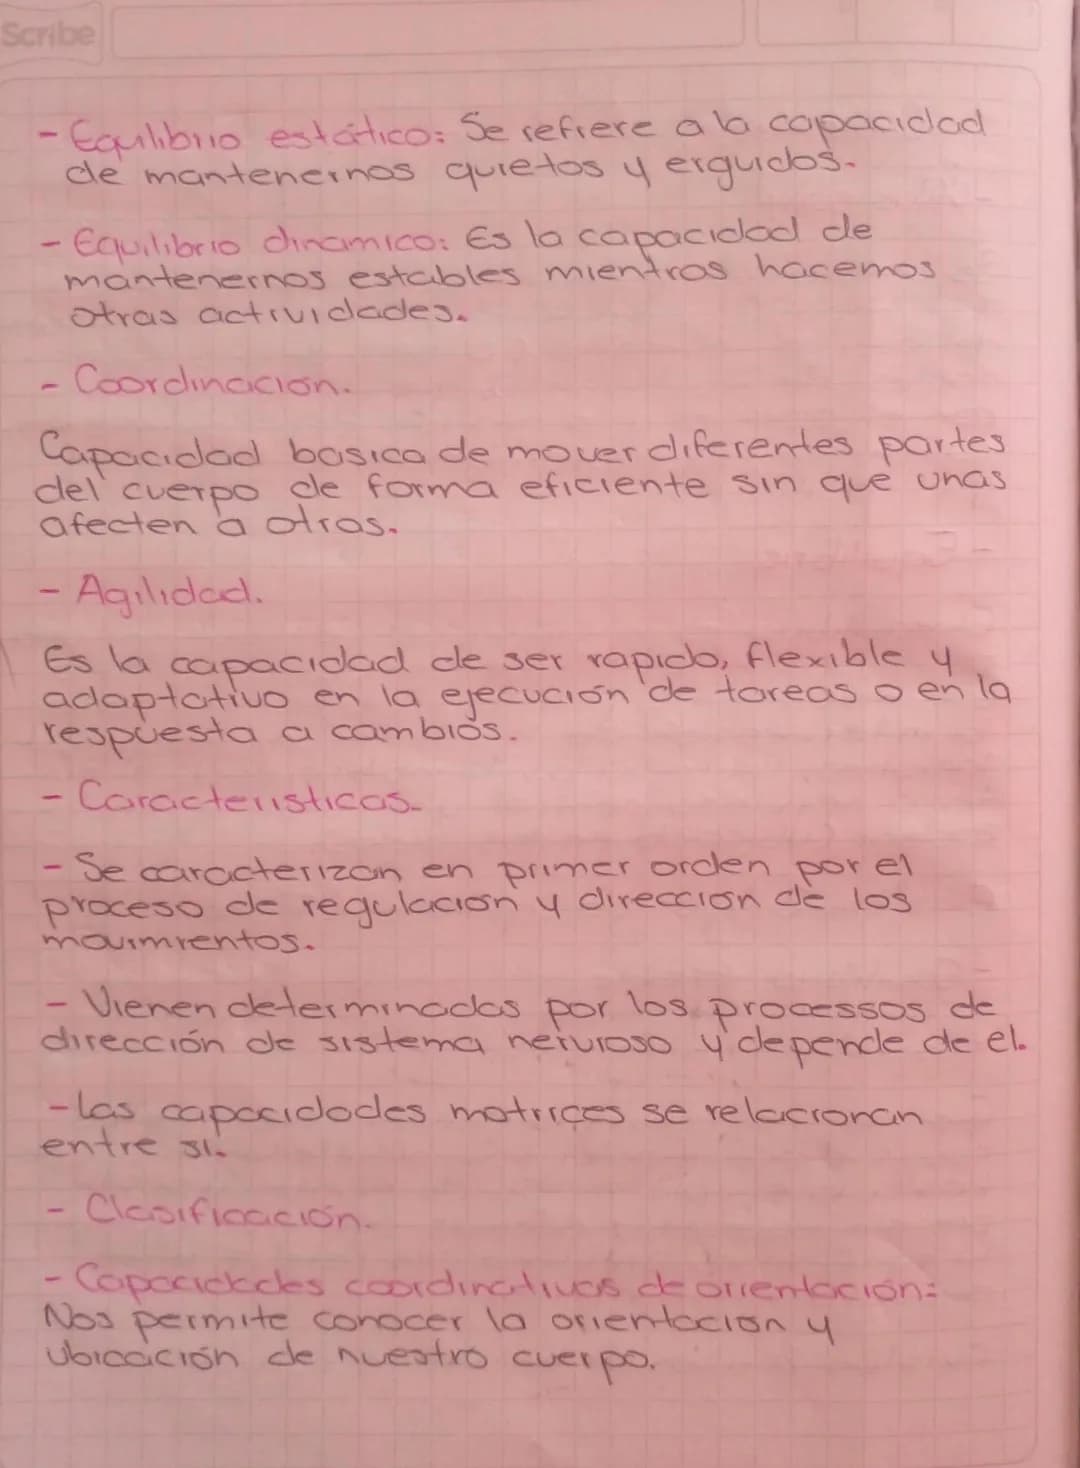 Scribe
- Equilibrio estático: Se refiere a la capacidad
de mantenernos quietos y erguidos.
- Equilibrio dinamico: Es la capacidad de
mantenernos estables mientras hacemos
otras actividades.
- Coordinación.
Capacidad basica de mover diferentes partes
del cuerpo de forma eficiente sin que unas
afecten a otras.
- Agilidad.
Es la capacidad de ser rapido, flexible y
adaptativo en la ejecución de tareas o en la
respuesta a cambios.
- Caracteristicas.
- Se caracterizan en primer orden por el
proceso de regulación y dirección de los
movimientos.
- Vienen determinadas por los processos de
dirección de sistema nervioso y depende de el.
- Las capacidades motrices se relacionan
entre si.
- Clasificación.
- Capacidades coordinativas de orientación:
Nos permite conocer la orientación y
ubicación de nuestro cuerpo.